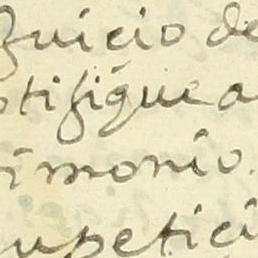 Juicio de
otifique a
imonio.
u petici